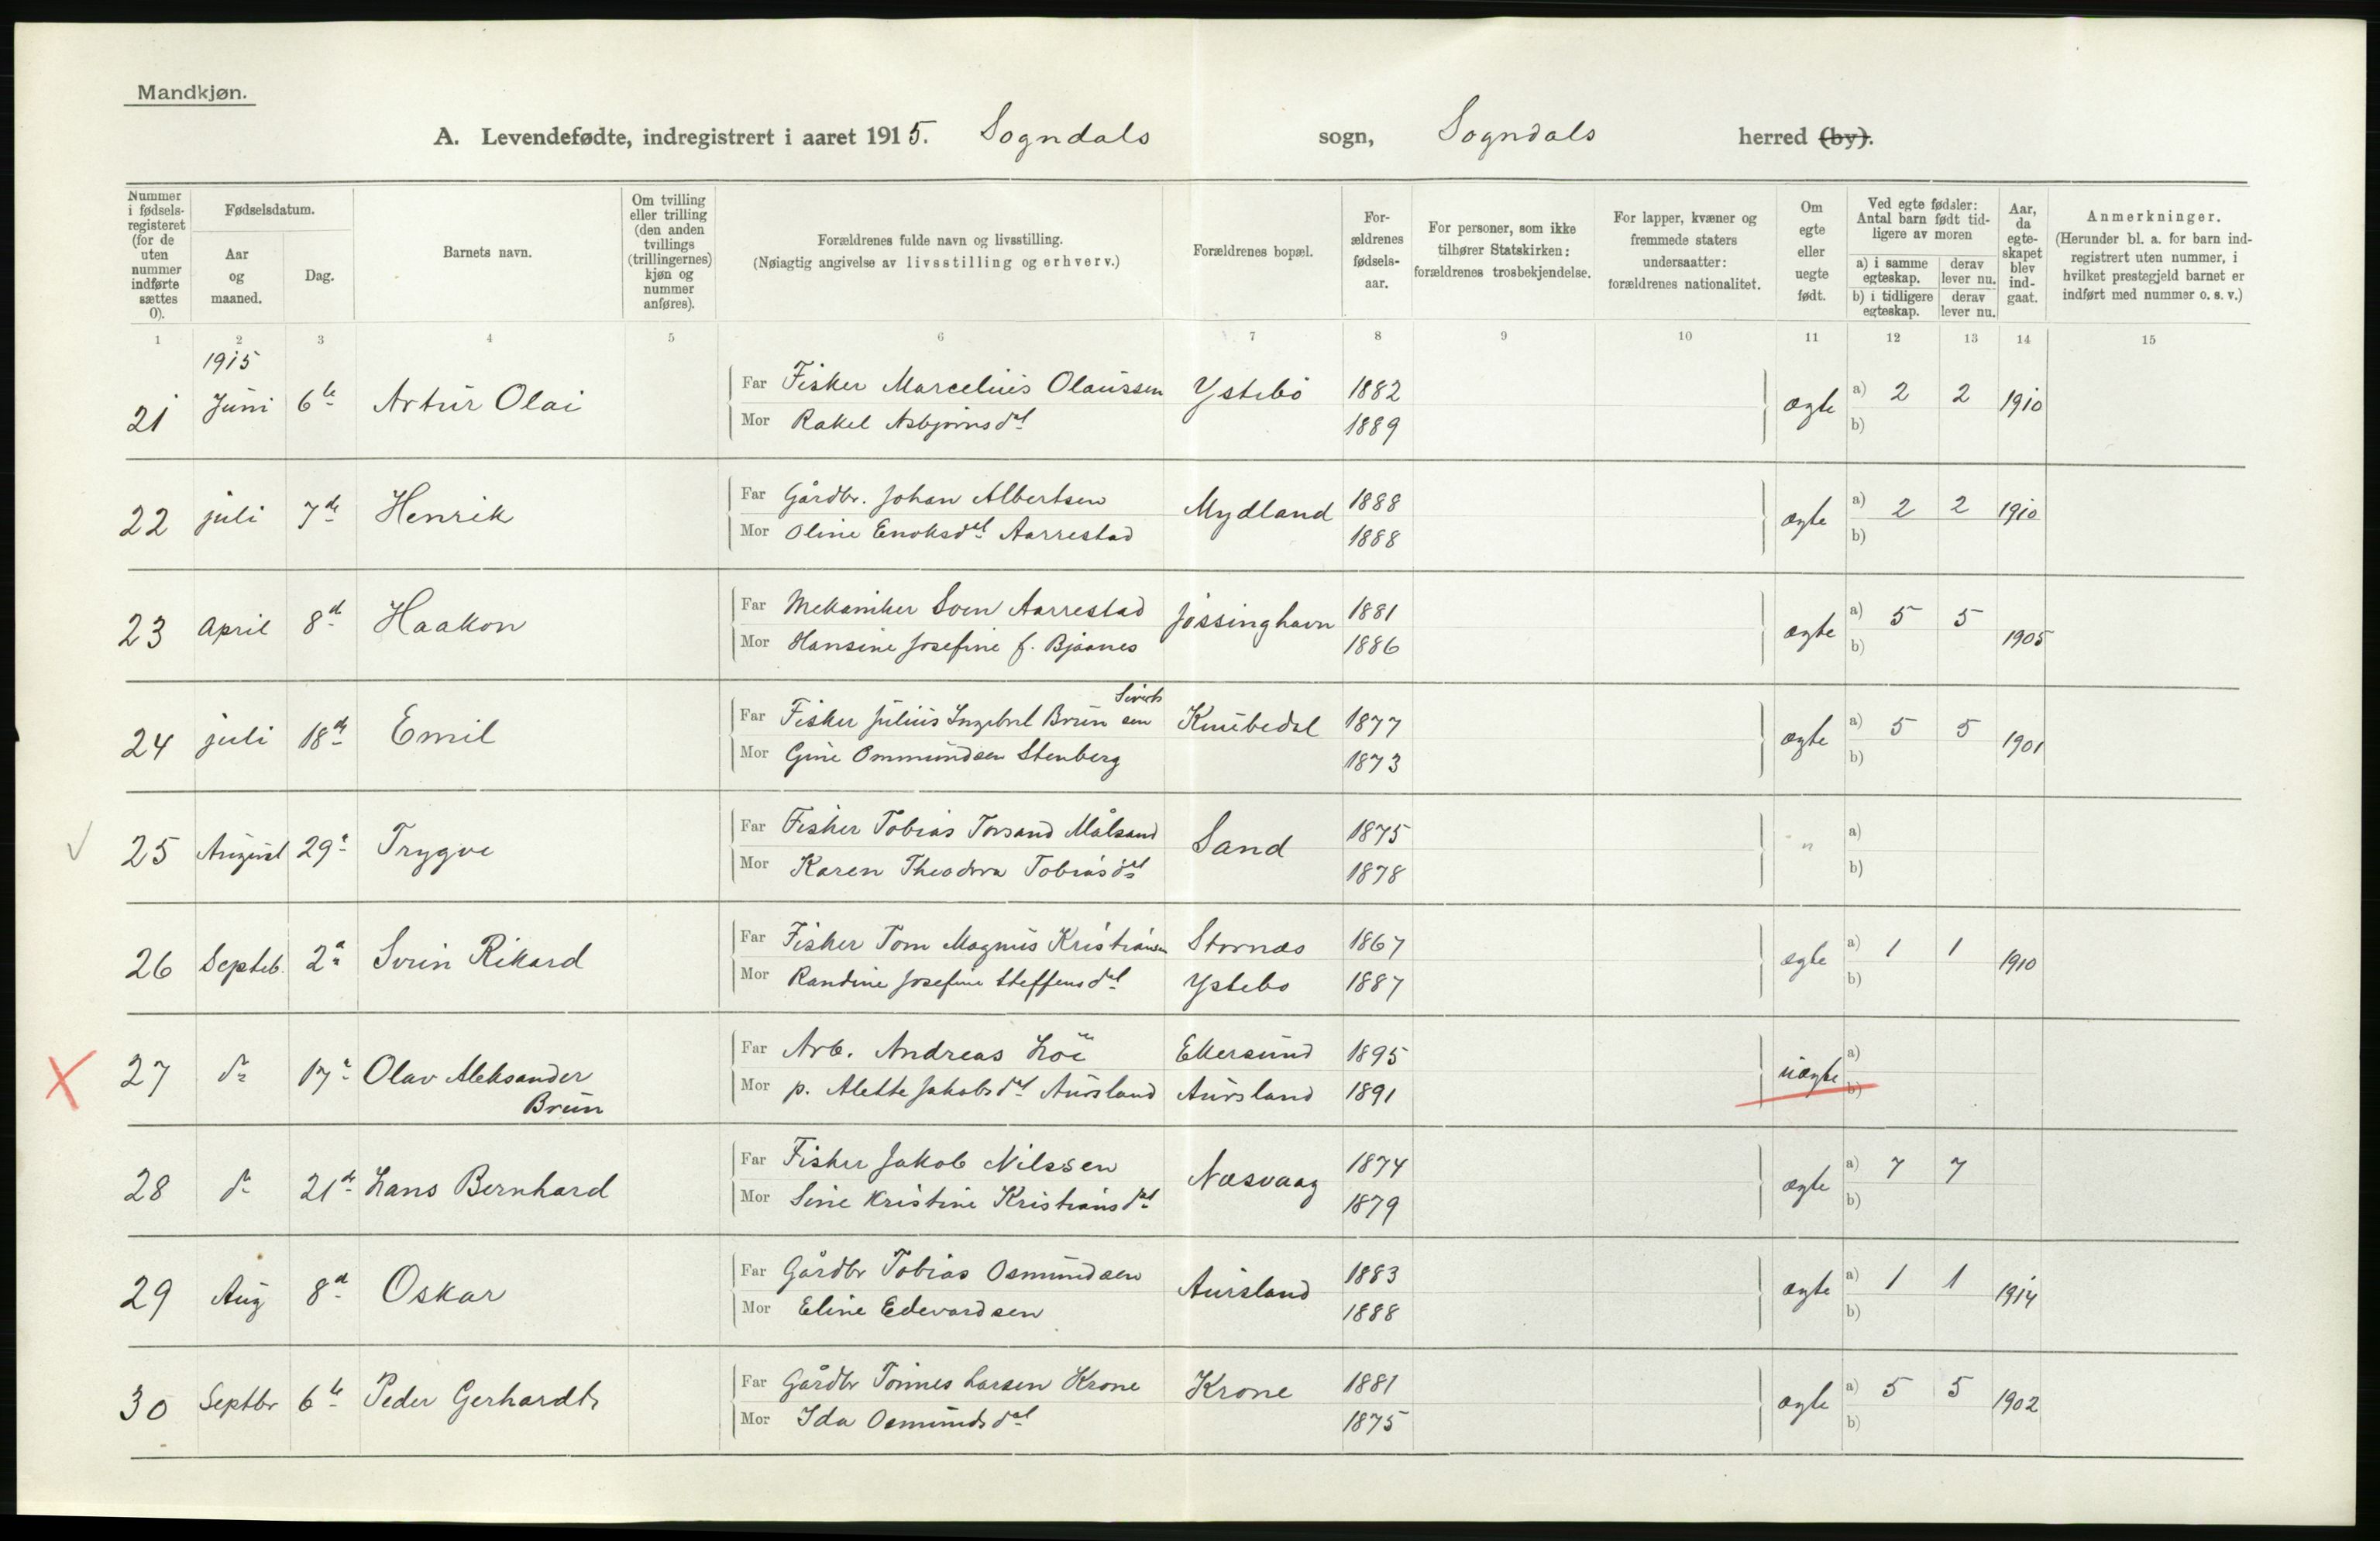 Mandkjøn.
A. Levendefødte, indregistrert i aaret 1915. Sogndals sogn, Sogndals herred (by).
Nummer i fødsels-registeret (for de uten nummer indførte sættes 0).
Fødselsdatum.
Aar og maaned.
Dag.
Barnets navn.
Om tvilling eller trilling (den anden tvillings (trillingernes) kjøn og nummer anføres).
Forældrenes fulde navn og livsstilling.
(Nøiagtig angivelse av livsstilling og erhverv.)
Forældrenes bopæl.
For-ældrenes fødsels-aar.
For personer, som ikke tilhører Statskirken: forældrenes trosbekjendelse.
For lapper, kvæner og fremmede staters undersaatter: forældrenes nationalitet.
Om egte eller uegte født.
Ved egte fødsler: Antal barn født tid-ligere av moren
a) i samme egteskap.
derav lever nu.
b) i tidligere egteskap.
derav lever nu.
Aar, da egte-skapet blev ind-gaat.
Anmerkninger.
(Herunder bl. a. for barn ind-registrert uten nummer, i hvilket prestegjeld barnet er indført med nummer o. s. v.)
1 2 3 4 5 6 7 8 9 10 11 12 13 14 15
1915
21 Juni 6te Artur Olai Far Fisker Marcelius Olaussen Ystebö 1882 ægte a) 2 2 1910
Mor Rakel Asbjörnsdat 1889 b)
22 juli 7de Henrik Far Gårdbr. Johan Albertsen Mydland 1888 ægte a) 2 2 1910
Mor Oline Enoksdat Aarrestad 1888 b)
23 April 8d Haakon Far Mekaniker Sven Aarrestad Jössinghavn 1881 ægte a) 5 5 1905
Mor Hansine Josefine f. Bjaanes 1886 b)
24 juli 18de Emil Far Fisker Julius Ingebret Brun Siverts sen Knubedal 1877 ægte a) 5 5 1901
Mor Gine Ommundsen Stenberg 1873 b)
25 August 29' Trygve Far Fisker Tobias Målsand Sand 1875 " a)
Mor Karen Theodora Tobiasdat 1878 b)
26 Septeb. 2d Rikard Far Fisker Tom Magnus Kristiansen Stornæs 1867 egte a) 1 1 1910
Mor Randine Josefine Steffensdat Ystebo 1887 b)
27 do 17' Olav Aleksander Brun Far Arb. Andreas Ekersund 1895 uægte a)
Mor p. Alette Jakobsdat Aursland Aursland 1891 b)
28 do 21de Hans Bernhard Far Fisker Jakob Nilssen Næsvaag 1874 ægte a) 7 7
Mor Sine Kristine Kristiansdat 1879 b)
29 Aug 8d Oskar Far Gårdbr Tobias Osmundsen Aursland 1883 ægte a) 1 1 1914
Mor Eline Edevardsen 1888 b)
30 Septbr 6te Peder Gerhardt Far Gårdbr Tönnes Larsen Krone Krone 1881 ægte a) 5 5 1902
Mor Ida Osmundsdat 1875 b)